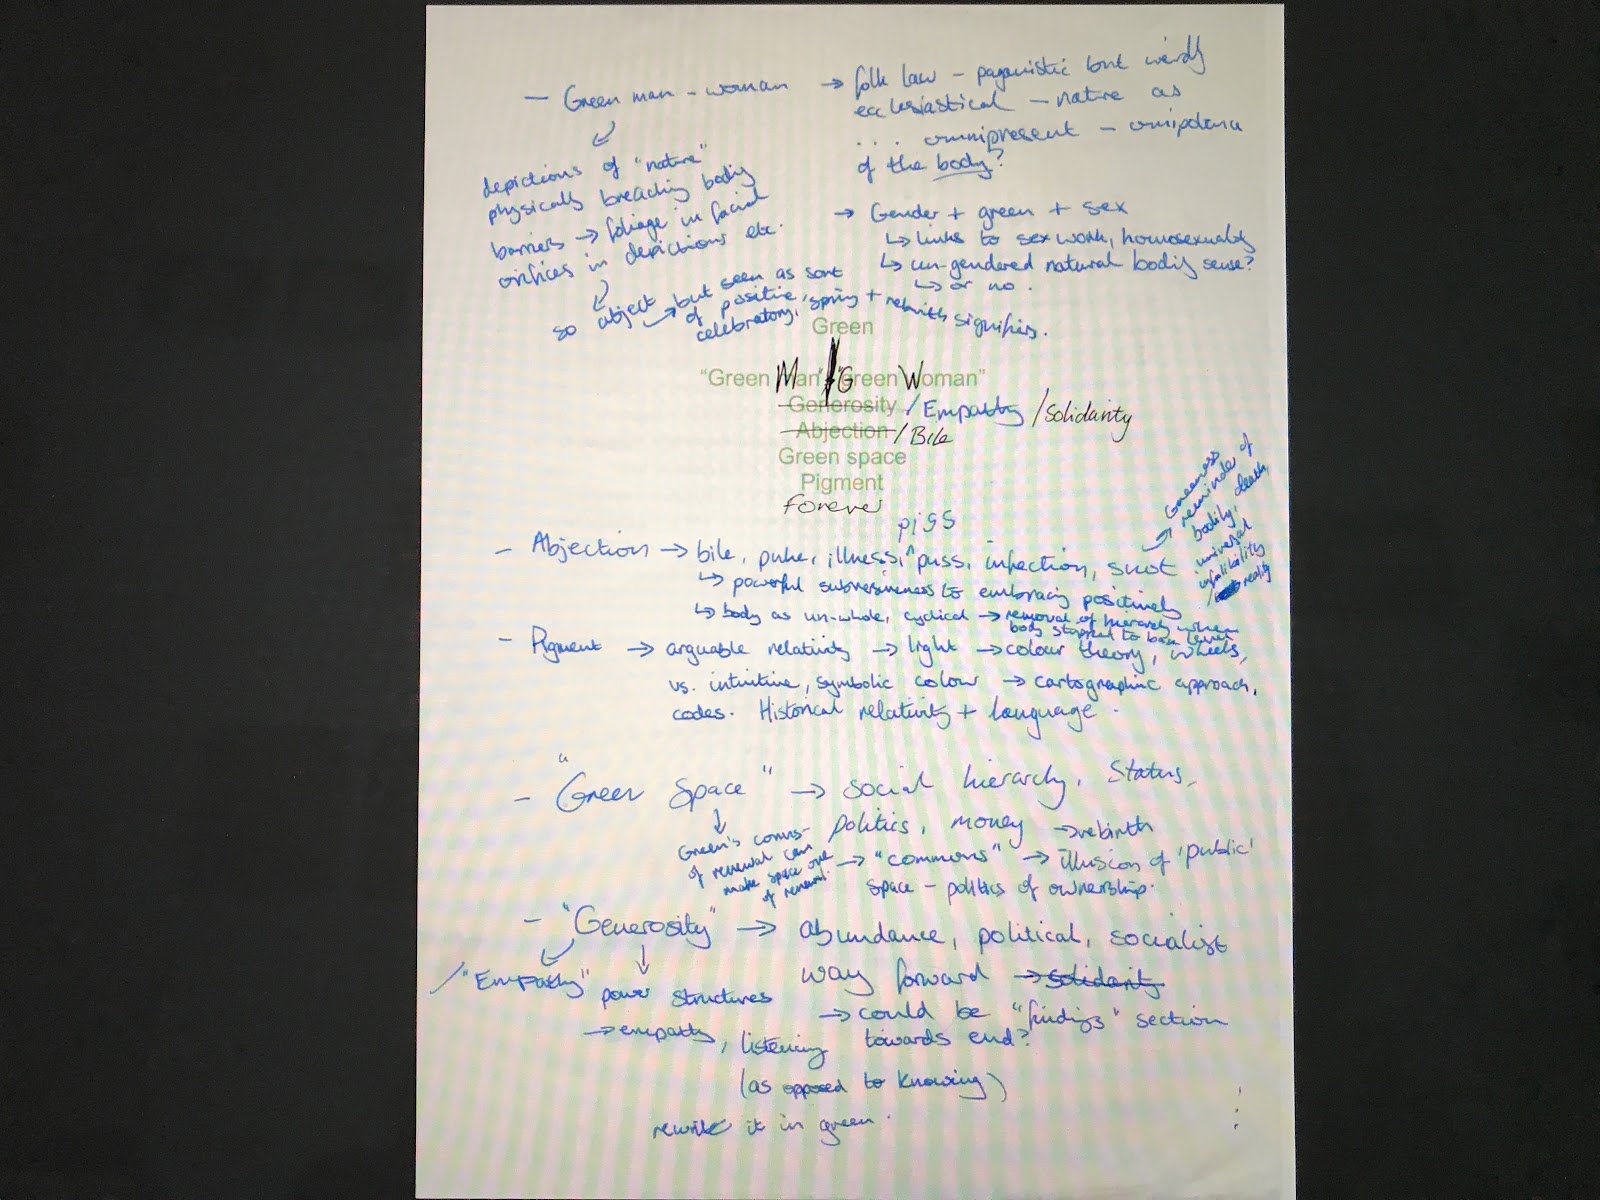 - Green man - woman → folk law - paganistic but weirdly
ecclesiastical - nature as
... omnipresent -
of the body?
depictions of "nature"
physically breaching body
barriers → foliage in facial
orifices in depictions etc.
so abject → but seen as sort
of positive,
celebratory, spring + rebirth signifiers.
→ Gender + green + sex
↳ links to sex work, homosexuality
↳ un-gendered natural bodily sense?
↳ or no.
Green
"Green Man / Green Woman"
Generosity / Empathy / Solidarity
Abjection / Bile
Green space
Pigment
Forever
piss
- Abjection → bile, puke, illness, ^ puss, infection, snot
→ Greenness
reminder of
bodily, death,
universal
infalibility
/ reality
↳ powerful subversiveness to embracing positively
↳ body as un-whole, cyclical → removal of hierarchy when
body stripped to base level
- Pigment → arguable relativity → light → colour theory, wheels,
vs. intuitive, symbolic colour → cartographic approach,
codes. Historical relativity + language.
- "Green Space" → social hierarchy, status,
politics, money → rebirth
Green's
of renewal can
make space one
of renewal.
→ "commons" → illusion of 'public'
space - politics of ownership.
- "Generosity" → abundance, political, socialist
way forward → solidarity
/ "Empathy"
power structures
→ empathy, listening
(as opposed to knowing)
→ could be "findings" section
towards end?
rewrite it in green.